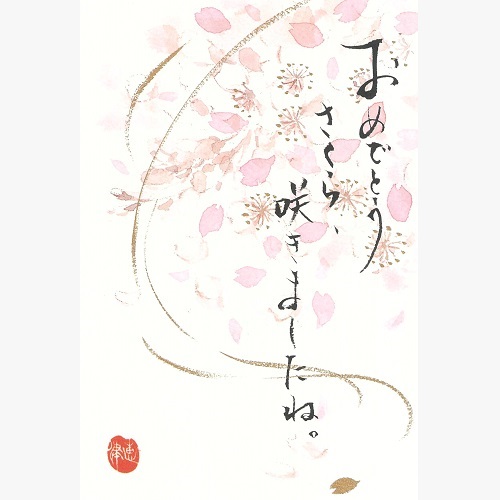 おめでとう
さくら、
咲きましたね。